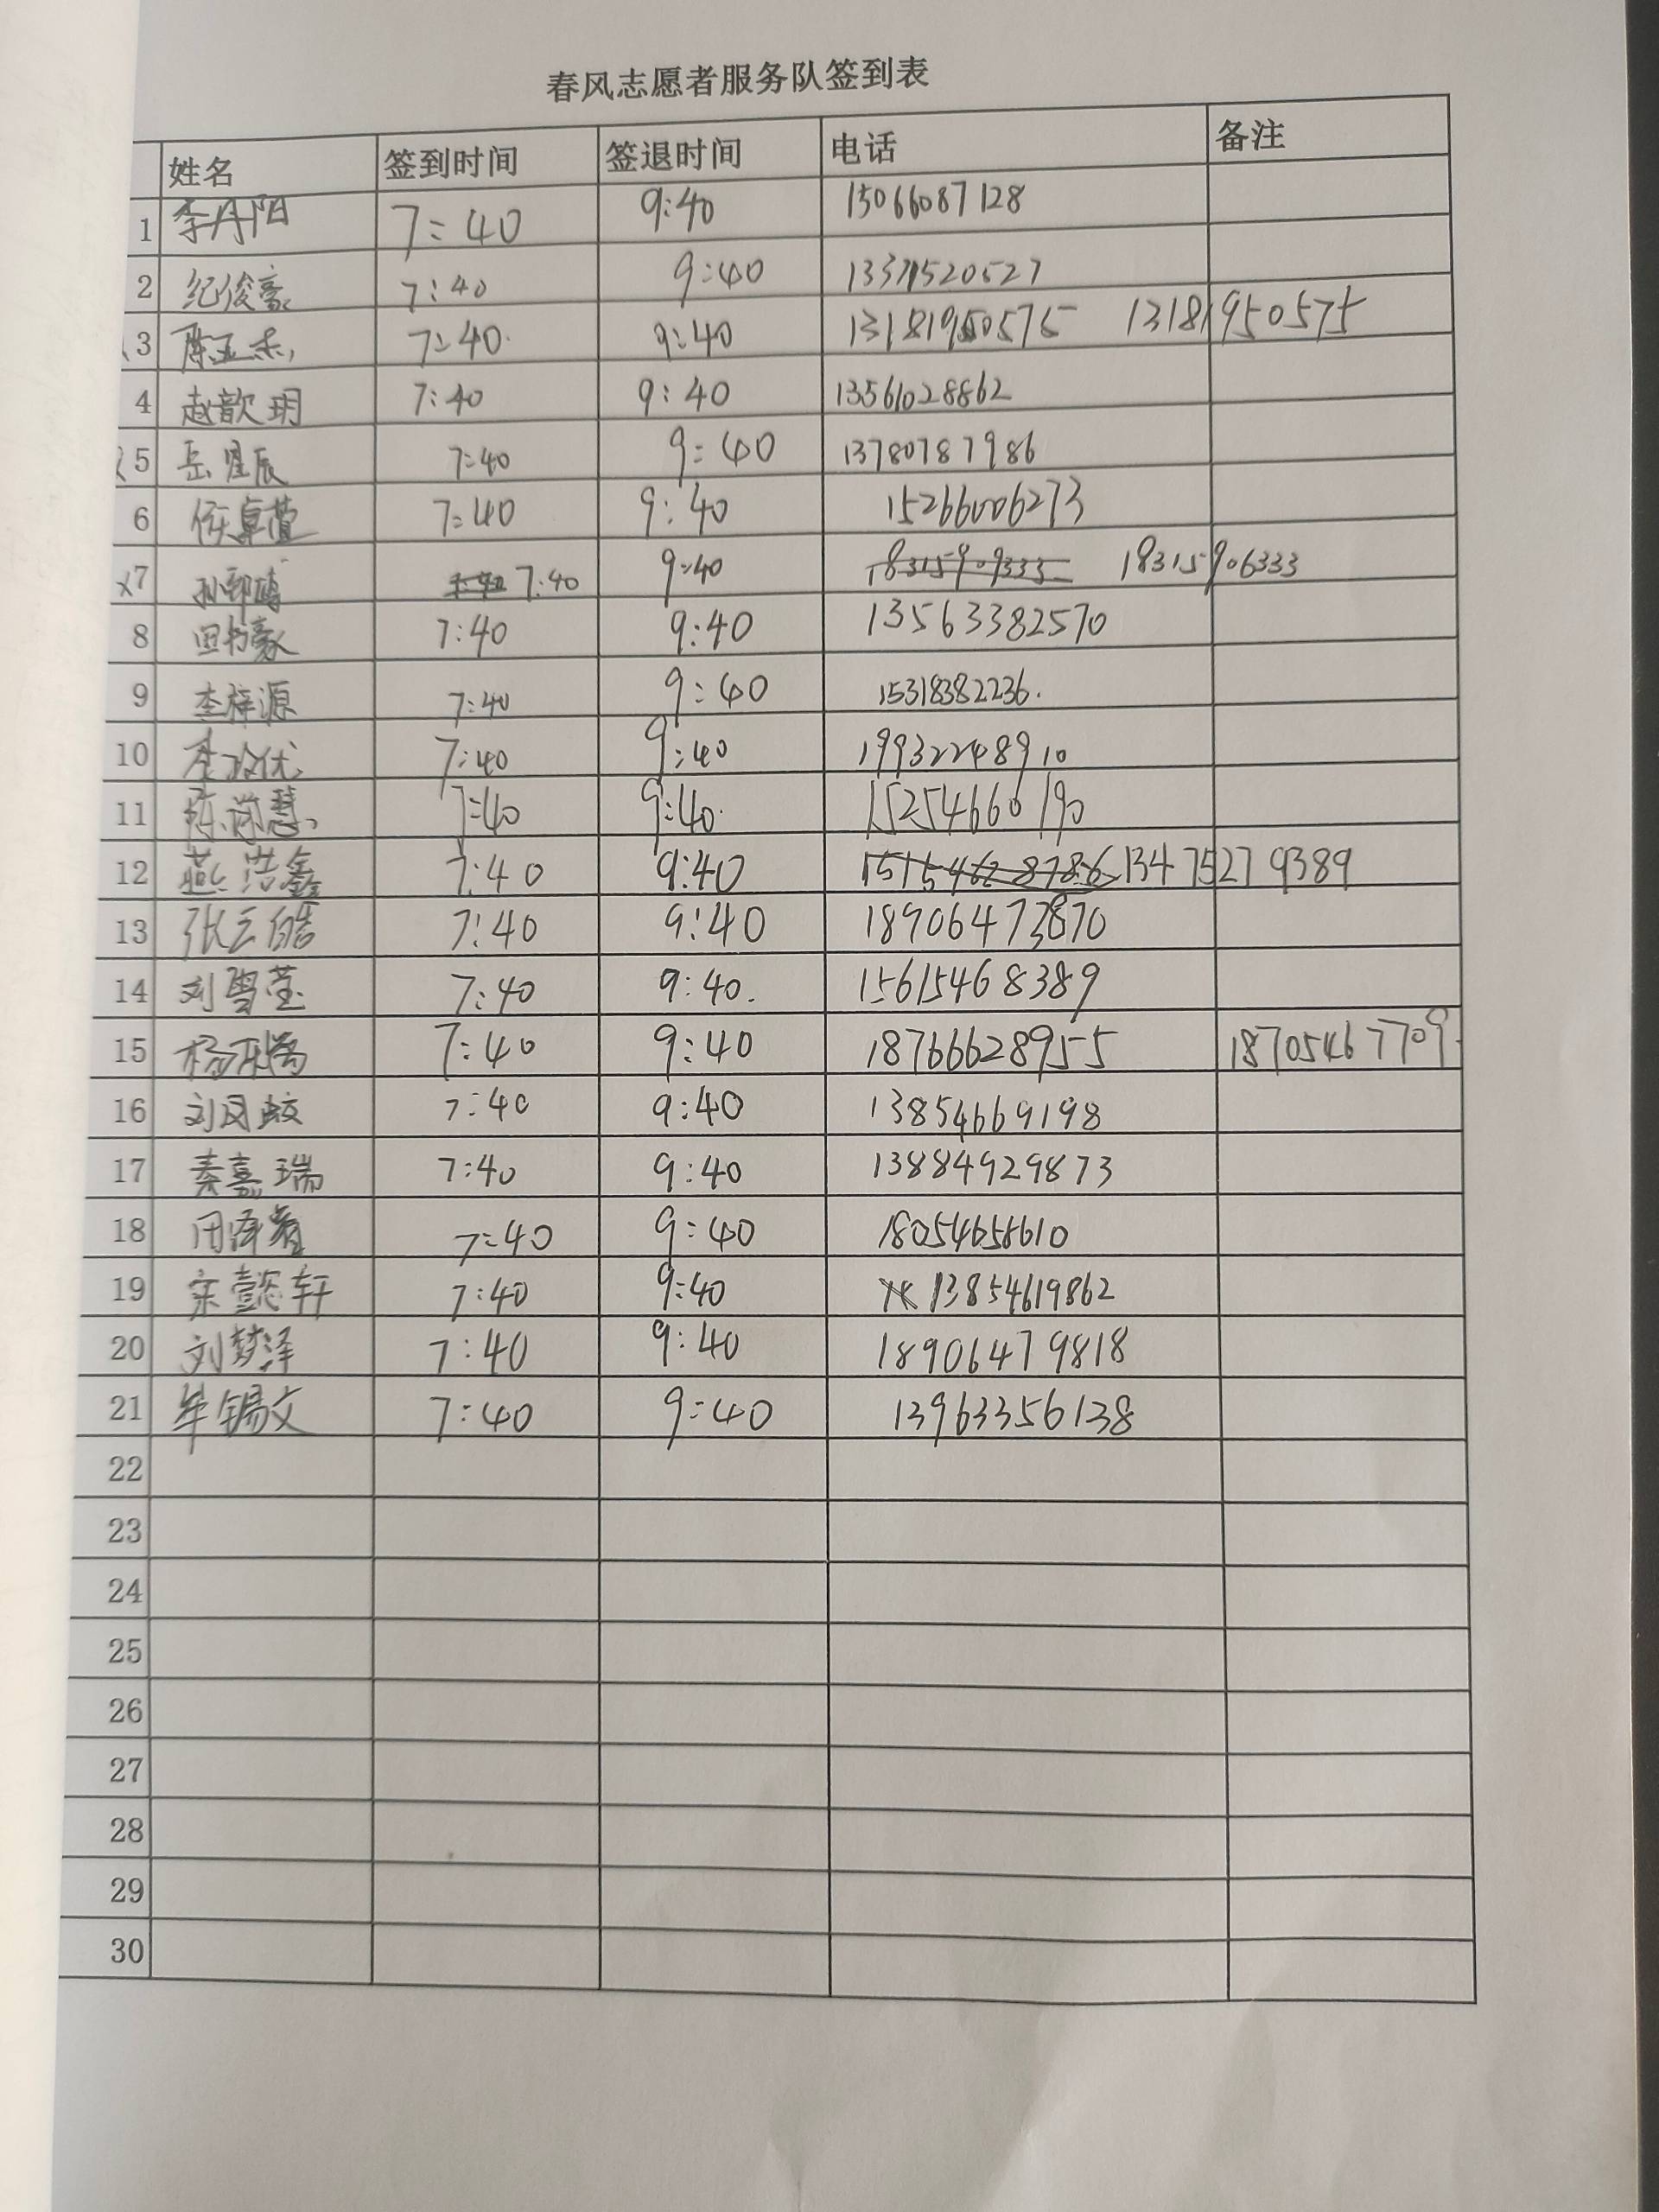 春风志愿者服务队签到表
姓名 签到时间 签退时间 电话 备注
1 李丹阳 7:40 9:40 15066087128
2 纪俊豪 7:40 9:40 13371520527
3 7:40 9:40 13181950575 13181950575
4 赵歆玥 7:40 9:40 13561028862
5 岳星辰 7:40 9:40 13780787986
6 任卓萱 7:40 9:40 15266006273
x7 7:40 9:40 18315906333
8 田书豪 7:40 9:40 13563382570
9 李梓源 7:40 9:40 15318382236.
10 7:40 9:40 19932248910
11 7:40 9:40 15254660190
12 燕浩鑫 7:40 9:40 13475279389
13 张云皓 7:40 9:40
14 刘雪莹 7:40 9:40. 15615468389
15 7:40 9:40 18766628955 18705467709
16 7:40 9:40 13854669198
17 秦嘉瑞 7:40 9:40 13884929873
18 7:40 9:40
19 宋懿轩 7:40 9:40 13854619862
20 刘梦泽 7:40 9:40 18906479818
21 牟锡文 7:40 9:40 13963356138
22
23
24
25
26
27
28
29
30